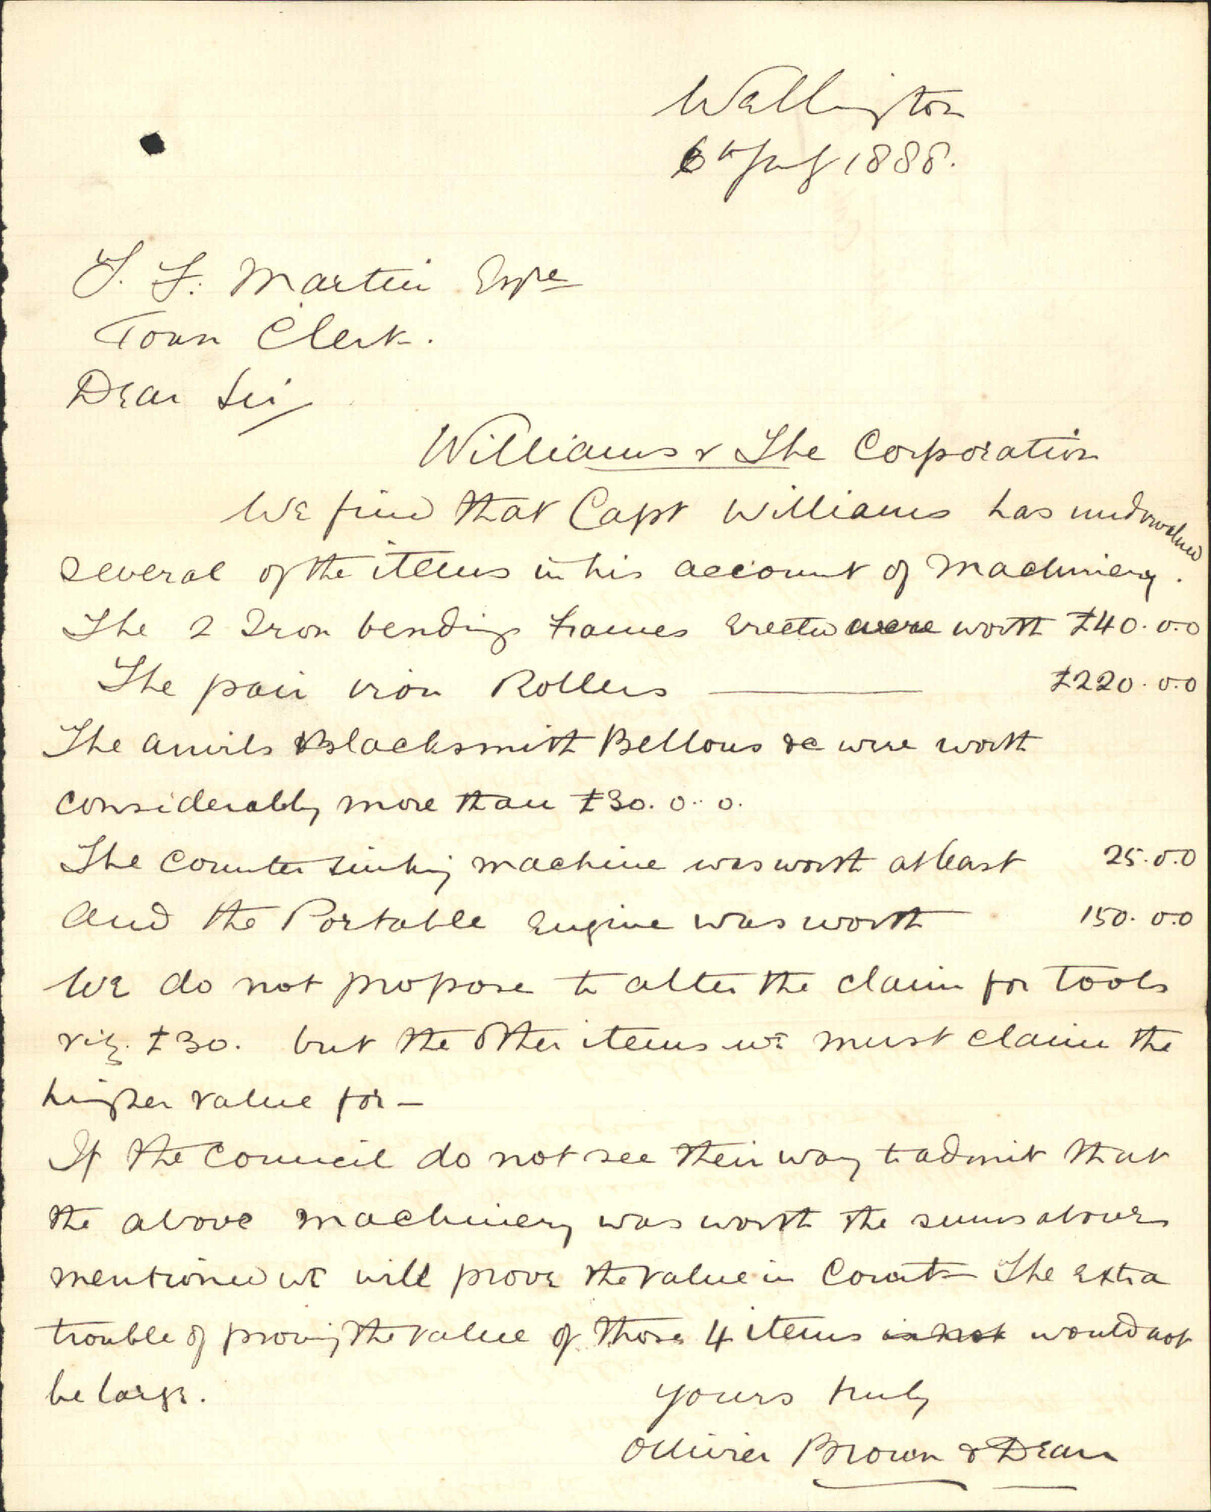 Wellington
6th July 1888.
F. F. Martin Esqre
Town Clerk.
Dear Sir
Williams v The Corporation
We find that Capt Williams has undervalued
several of the items in his account of Machinery.
The 2 Iron bending frames erected were worth £40.0.0
The pair iron Rollers £220.0.0
The anvils & Blacksmith Bellows &c were worth
considerably more than £30.0.0.
The counter sinking machine was worth at least 25.0.0
and the Portable Engine was worth 150.0.0
We do not propose to alter the claim for tools
viz. £30. but the other items we must claim the
higher value for —
If the Council do not see their way to admit that
the above machinery was worth the sums above
mentioned we will prove the value in Court — The extra
trouble of proving the value of those 4 items is not would not
be large.
Yours truly
Ollivier Brown & Dean